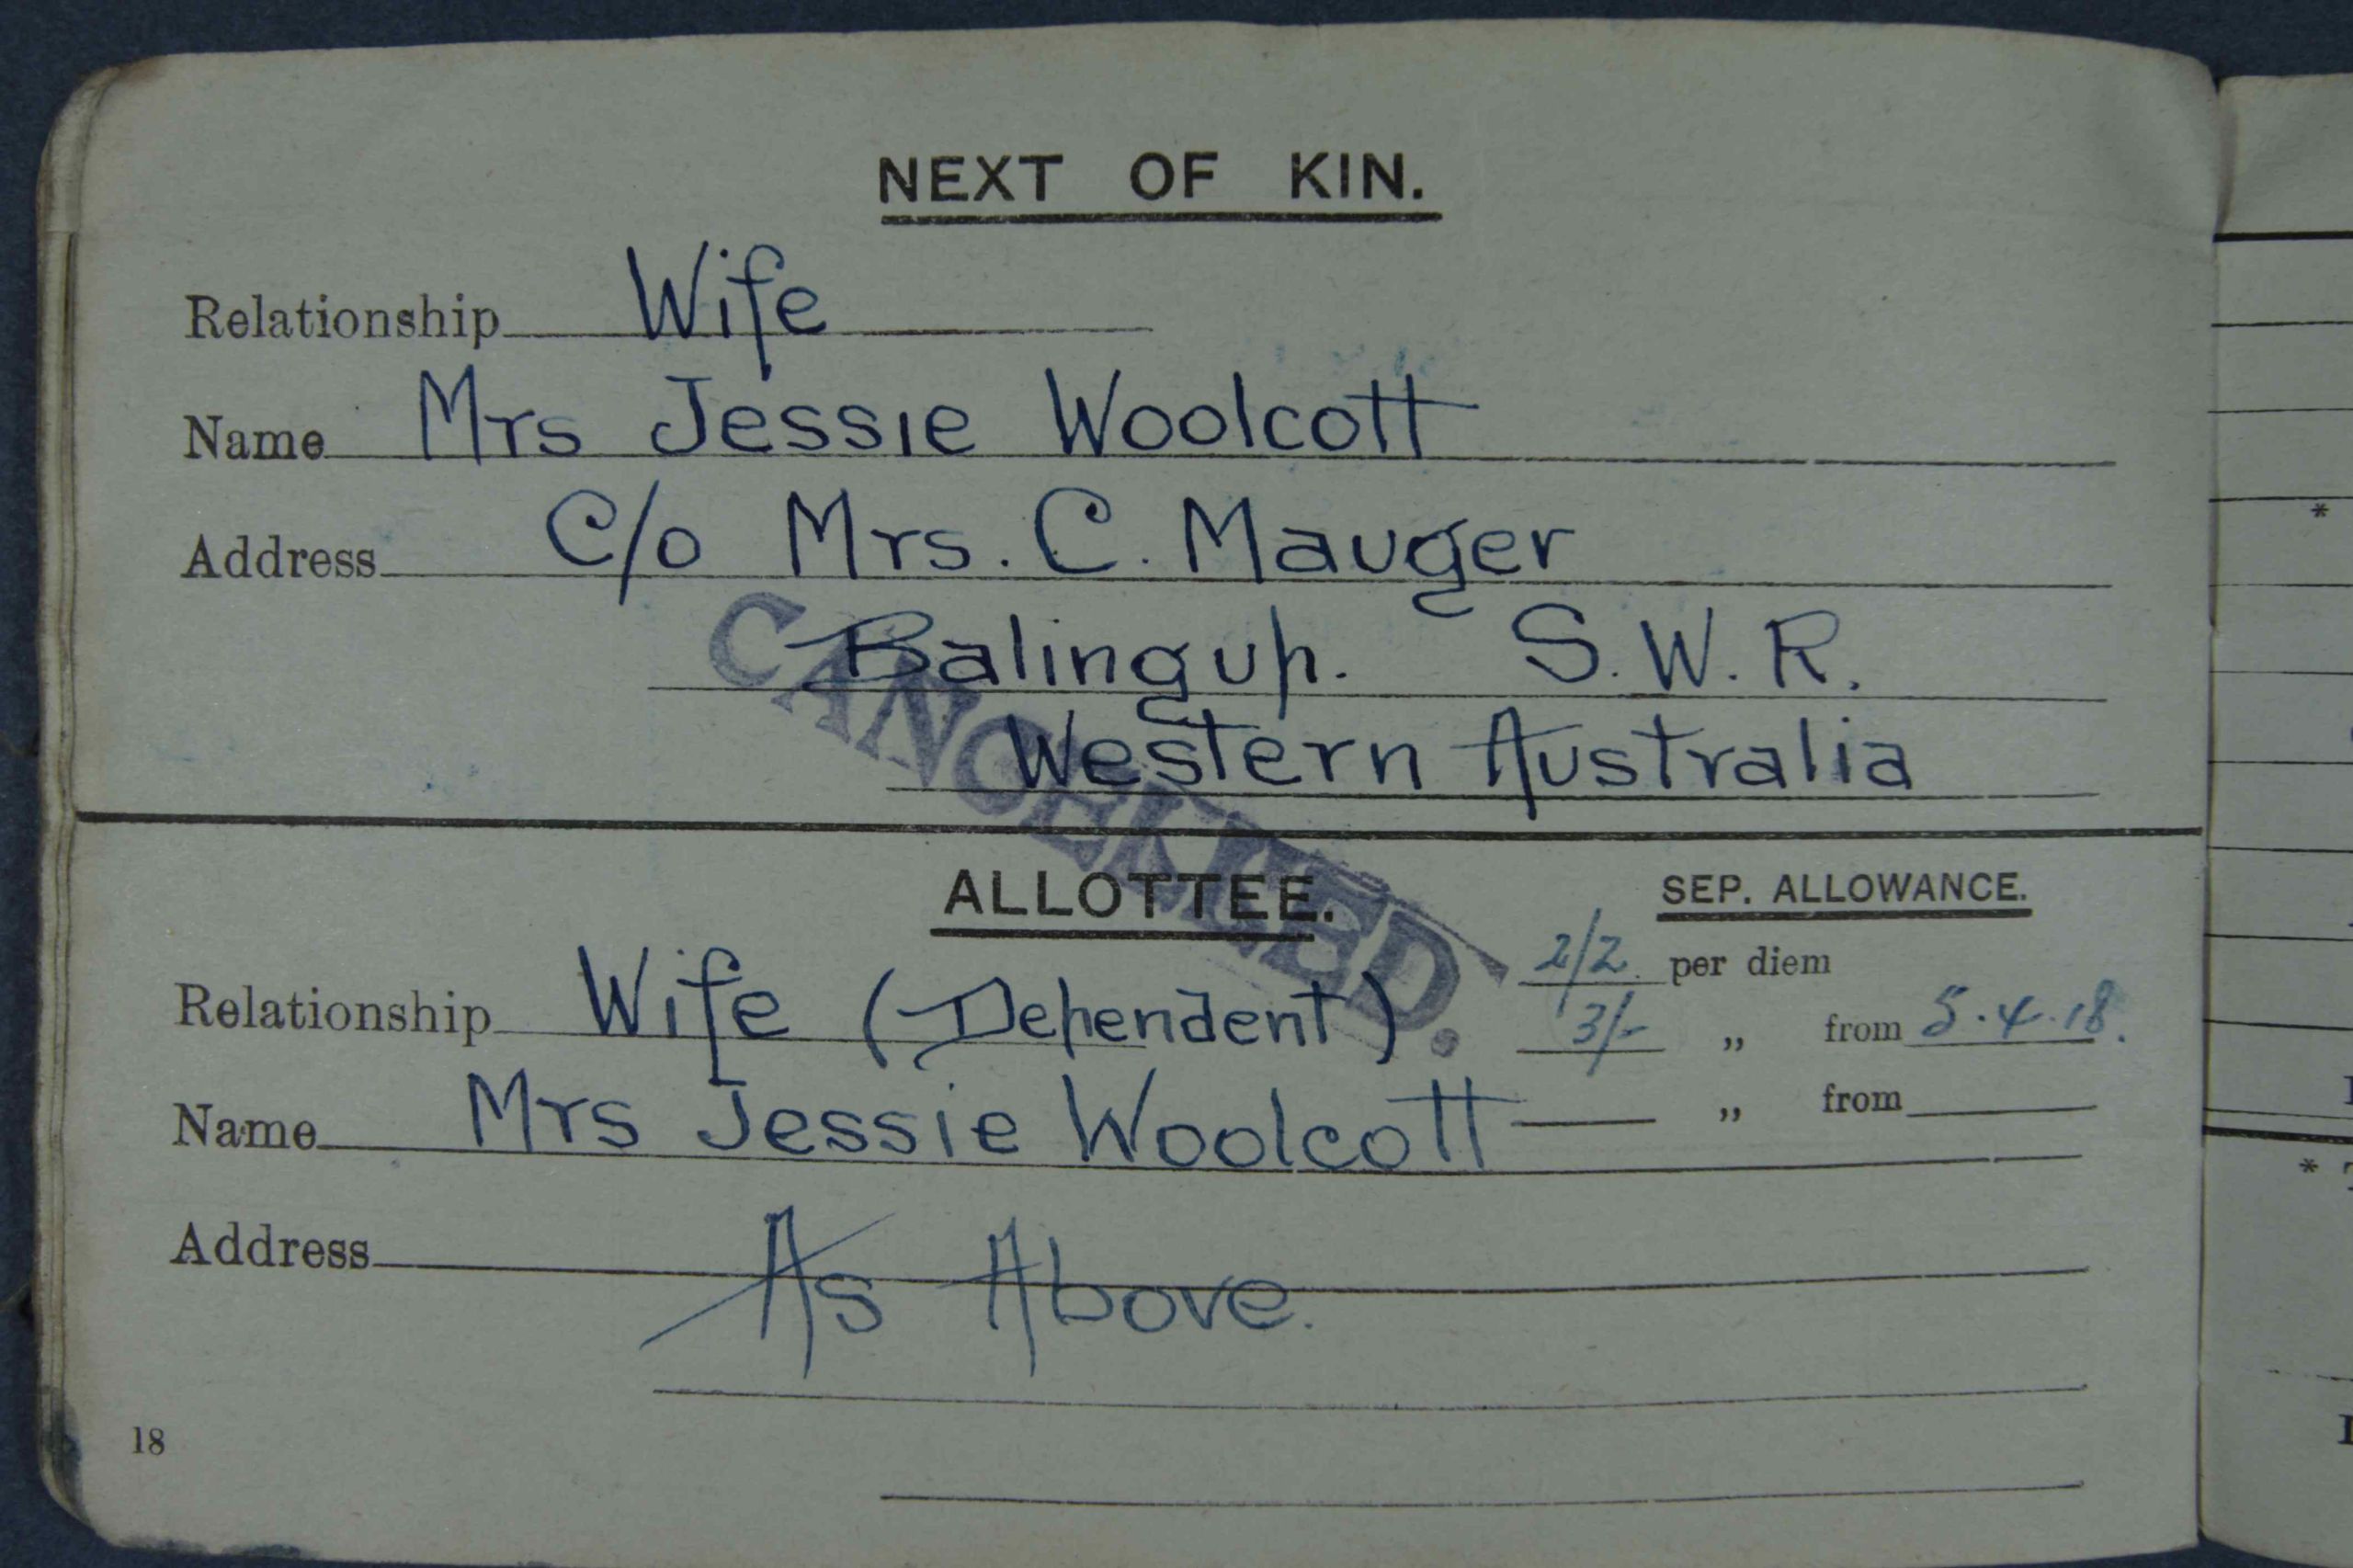 NEXT OF KIN.
Relationship Wife
Name Mrs Jessie Woolcott
Address C/o Mrs. C. Mauger
Balingup. S.W.R.
Western Australia
CANCELLED.
ALLOTTEE.
SEP. ALLOWANCE.
2/2 per diem
Relationship Wife (Dependent)
3/- „ from 5.4.18.
Name Mrs Jessie Woolcott
„ from
Address As Above.
18